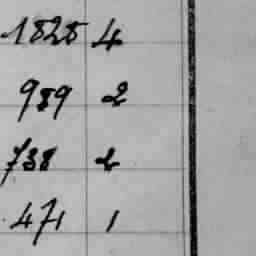 1828 4
989 2
738 2
471 1